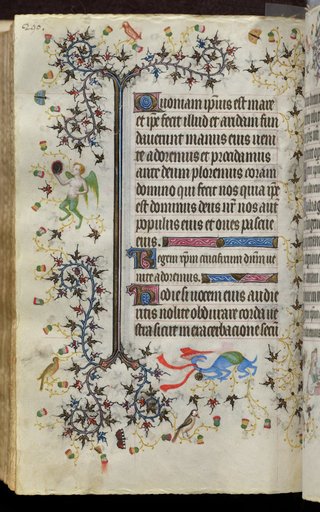 Quoniam ipius est mare
et ipe fecit illud et aridam fun
dauerunt manus eius ueni
te adoremus et procidamus
ante deum ploremus coram
domino qui fecit nos quia ipe
est dominus deus nr nos aut
populus eius et oues pascue
eius.
Regem
nite adoremus
Hodie si uocem eius audie
ritis nolite obdurare corda ue
stra sicut in exacerbacione secu